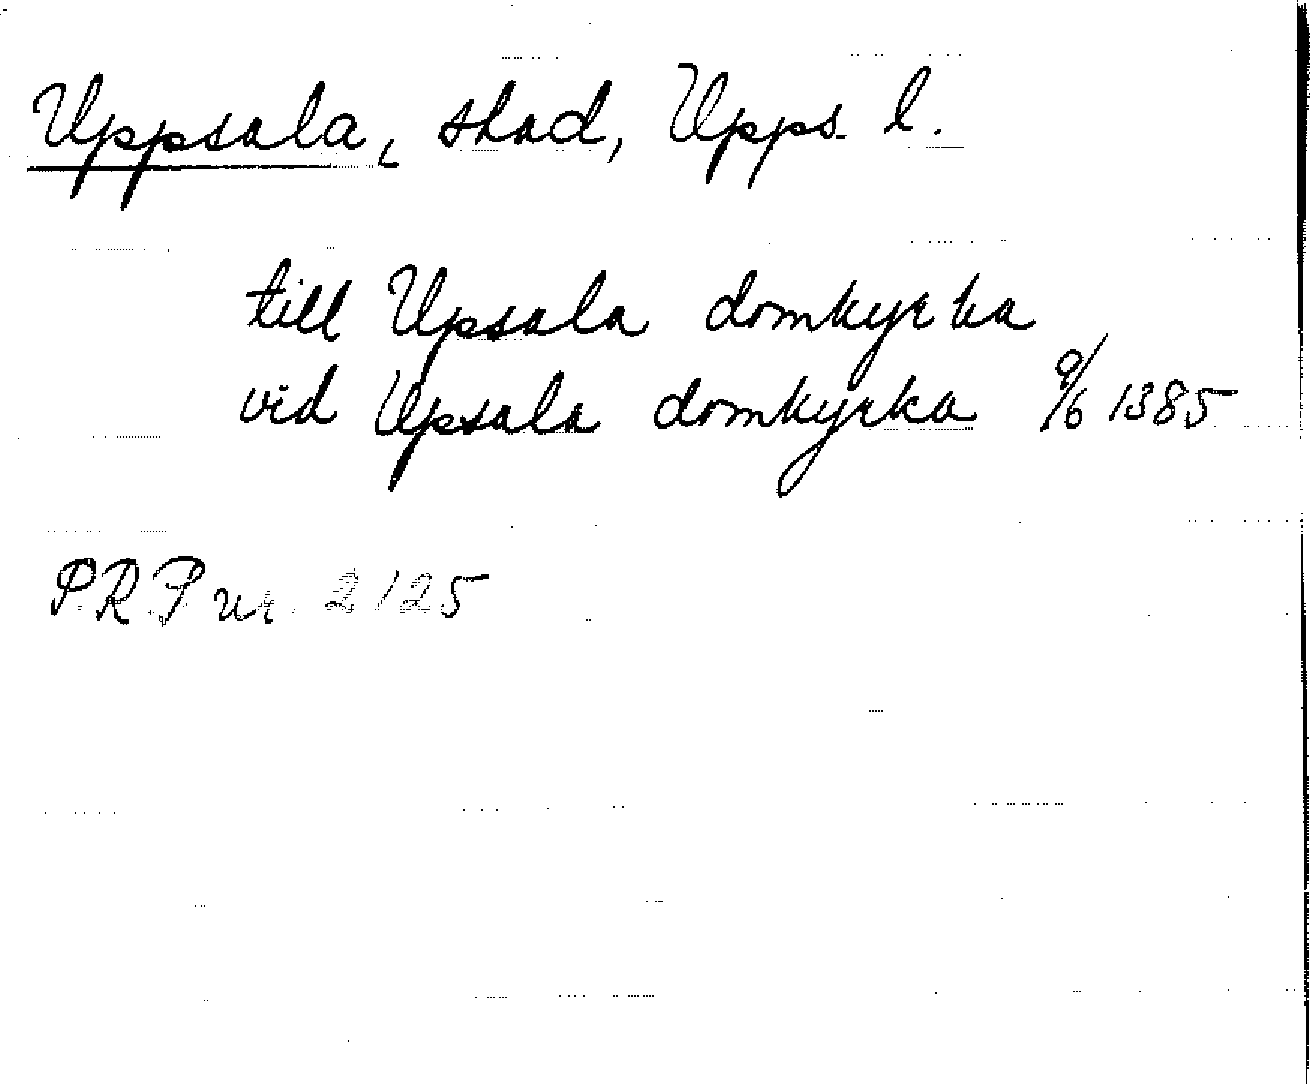 Uppsala, stad, Upps. l.
till Upsala domkyrka
vid Upsala domkyrka 9/6 1385
P.R.P nr. 2125